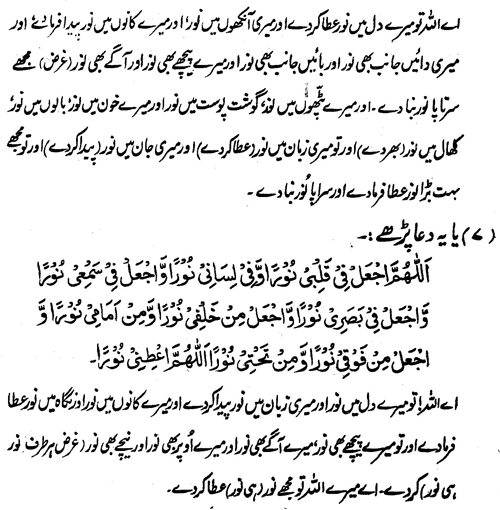 اے اللہ تو میرے دل میں نور عطا کر دے اور میری آنکھوں میں نور اور میرے کانوں میں نور پیدا فرمائے اور
میری دائیں جانب بھی نور اور بائیں جانب بھی نور اور میرے پیچھے بھی نور اور آگے بھی نور (غرض) مجھے
سرتاپا نور بنا دے ۔ اور میرے پٹھوں میں نور گوشت پوست میں نور اور میرے خون میں نور بالوں میں نور
کھال میں نور (بھر دے) اور تو میری زبان میں نور (عطا کر دے) اور میری جان میں نور (پیدا کر دے) اور تو مجھے
بہت بڑا نور عطا فرما دے اور سراپا نور بنا دے ۔
(۷) یا یہ دعا پڑھے :۔
اَللّٰهُمَّ اجْعَلْ فِیْ قَلْبِیْ نُوْرًا وَّفِیْ لِسَانِیْ نُوْرًا وَّاجْعَلْ فِیْ سَمْعِیْ نُوْرًا
وَّاجْعَلْ فِیْ بَصَرِیْ نُوْرًا وَّاجْعَلْ مِنْ خَلْفِیْ نُوْرًا وَّمِنْ اَمَامِیْ نُوْرًا وَّ
اجْعَلْ مِنْ فَوْقِیْ نُوْرًا وَّمِنْ تَحْتِیْ نُوْرًا اَللّٰهُمَّ اَعْطِنِیْ نُوْرًا۔
اے اللہ! تو میرے دل میں نور اور میری زبان میں نور پیدا کر دے اور میرے کانوں میں نور اور نگاہ میں نور عطا
فرما دے اور تو میرے پیچھے بھی نور، میرے آگے بھی نور اور میرے اوپر بھی نور اور نیچے بھی نور (غرض ہر طرف نور
ہی نور) کر دے۔ اے میرے اللہ تو مجھے نور (ہی نور) عطا کر دے۔